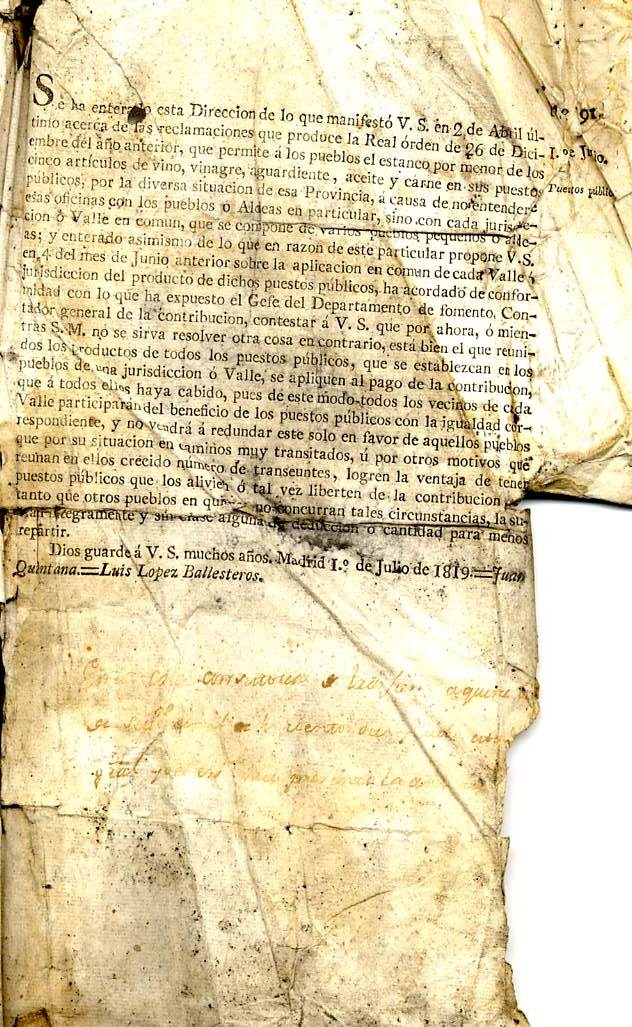 Se ha enterado esta Direccion de lo que manifestó V. S. en 2 de Abril úl-
timo acerca de las reclamaciones que produce la Real órden de 26 de Dici-
embre del año anterior, que permite á los pueblos el estanco por menor de los
cinco artículos de vino, vinagre, aguardiente, aceite y carne en sus puestos
públicos, por la diversa situacion de esa Provincia, á causa de no entenderse
esas oficinas con los pueblos ó Aldeas en particular, sino con cada jurisdic-
cion ó Valle en comun, que se compone de varios pueblos pequeños ó alde-
as; y enterado asimismo de lo que en razon de este particular propone V. S.
en 4 del mes de Junio anterior sobre la aplicacion en comun de cada Valle ó
jurisdiccion del producto de dichos puestos públicos, ha acordado de confor-
midad con lo que ha expuesto el Gefe del Departamento de fomento, Con-
tador general de la contribucion, contestar á V. S. que por ahora, ó mien-
tras S. M. no se sirva resolver otra cosa en contrario, está bien el que reuni-
dos los productos de todos los puestos públicos, que se establezcan en los
pueblos de una jurisdiccion ó Valle, se apliquen al pago de la contribucion,
que á todos ellos haya cabido, pues de este modo todos los vecinos de cada
Valle participarán del beneficio de los puestos públicos con la igualdad cor-
respondiente, y no vendrá á redundar este solo en favor de aquellos pueblos
que por su situacion en caminos muy transitados, ú por otros motivos que
reunan en ellos crecido número de transeuntes, logren la ventaja de tener
puestos públicos que los alivien ó tal vez liberten de la contribucion,
tanto que otros pueblos en no concurran tales circunstancias, la su-
integramente y sin clase alguna de deduccion ó cantidad para menos
repartir.
Dios guarde á V. S. muchos años. Madrid 1.º de Julio de 1819.=Juan
Quintana.=Luis Lopez Ballesteros.
N.º 91.
1.º de Junio.
Puestos públic